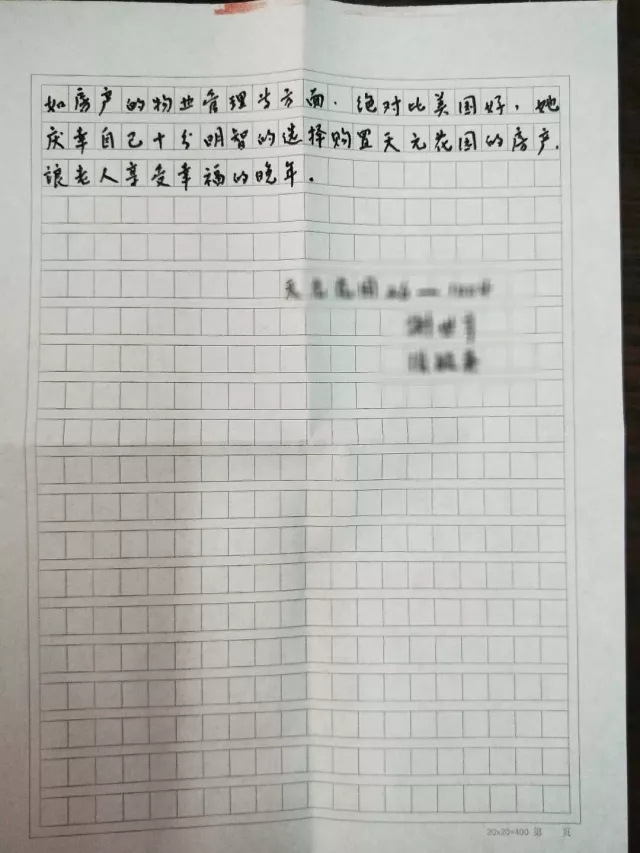 如房产的物业管理等方面.绝对比美国好,她
庆幸自己十分明智的选择购置天元花园的房产.
让老人享受幸福的晚年.
20x20=400 第 页